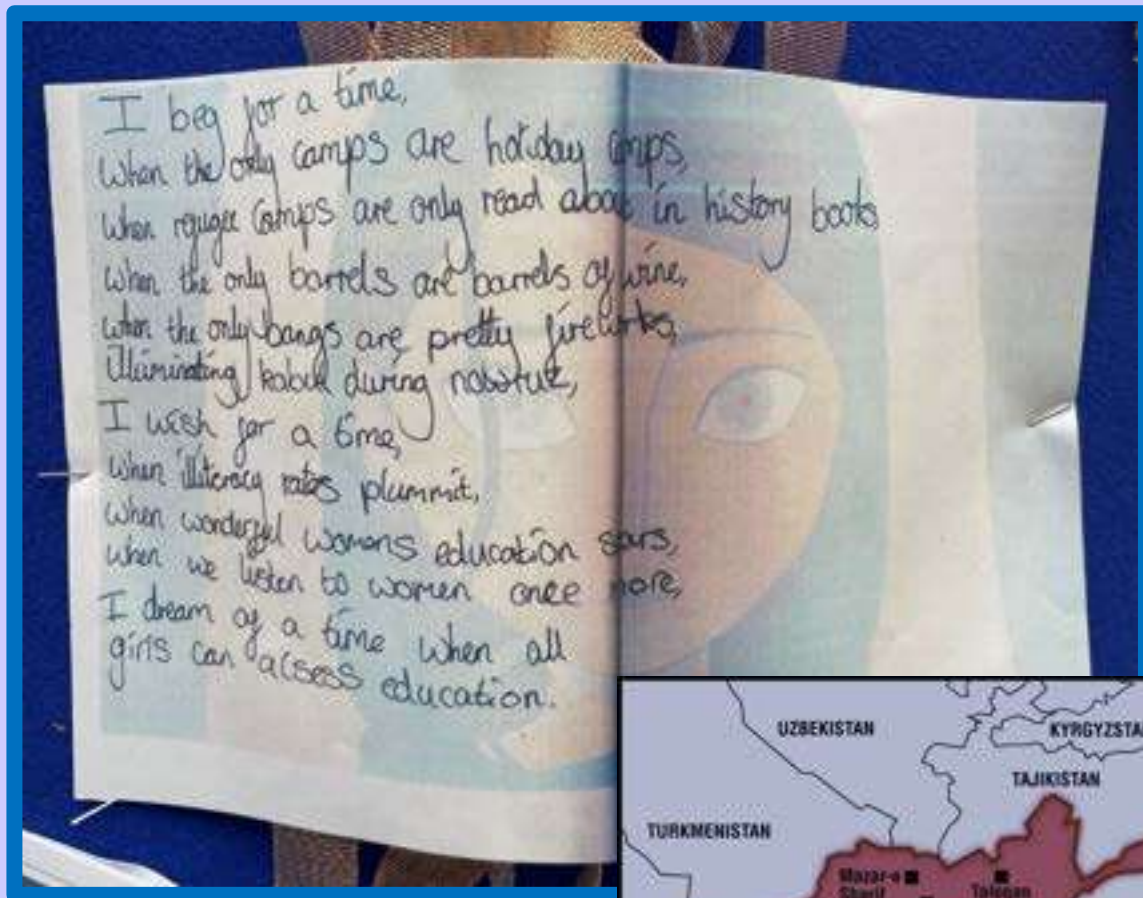 I beg for a time,
When the only camps are holiday camps,
When refugee camps are only read about in history books
When the only barrels are barrels of wine,
When the only bangs are pretty fireworks,
Illuminating Kabul during nowruz,
I wish for a time,
When illiteracy rates plummit,
When wonderful womens education soars,
When we listen to women once more,
I dream of a time when all
girls can acsess education.
UZBEKISTAN
KYRGYZSTA
TAJIKISTAN
TURKMENISTAN
Mazar-e
Sharif
Taloqan